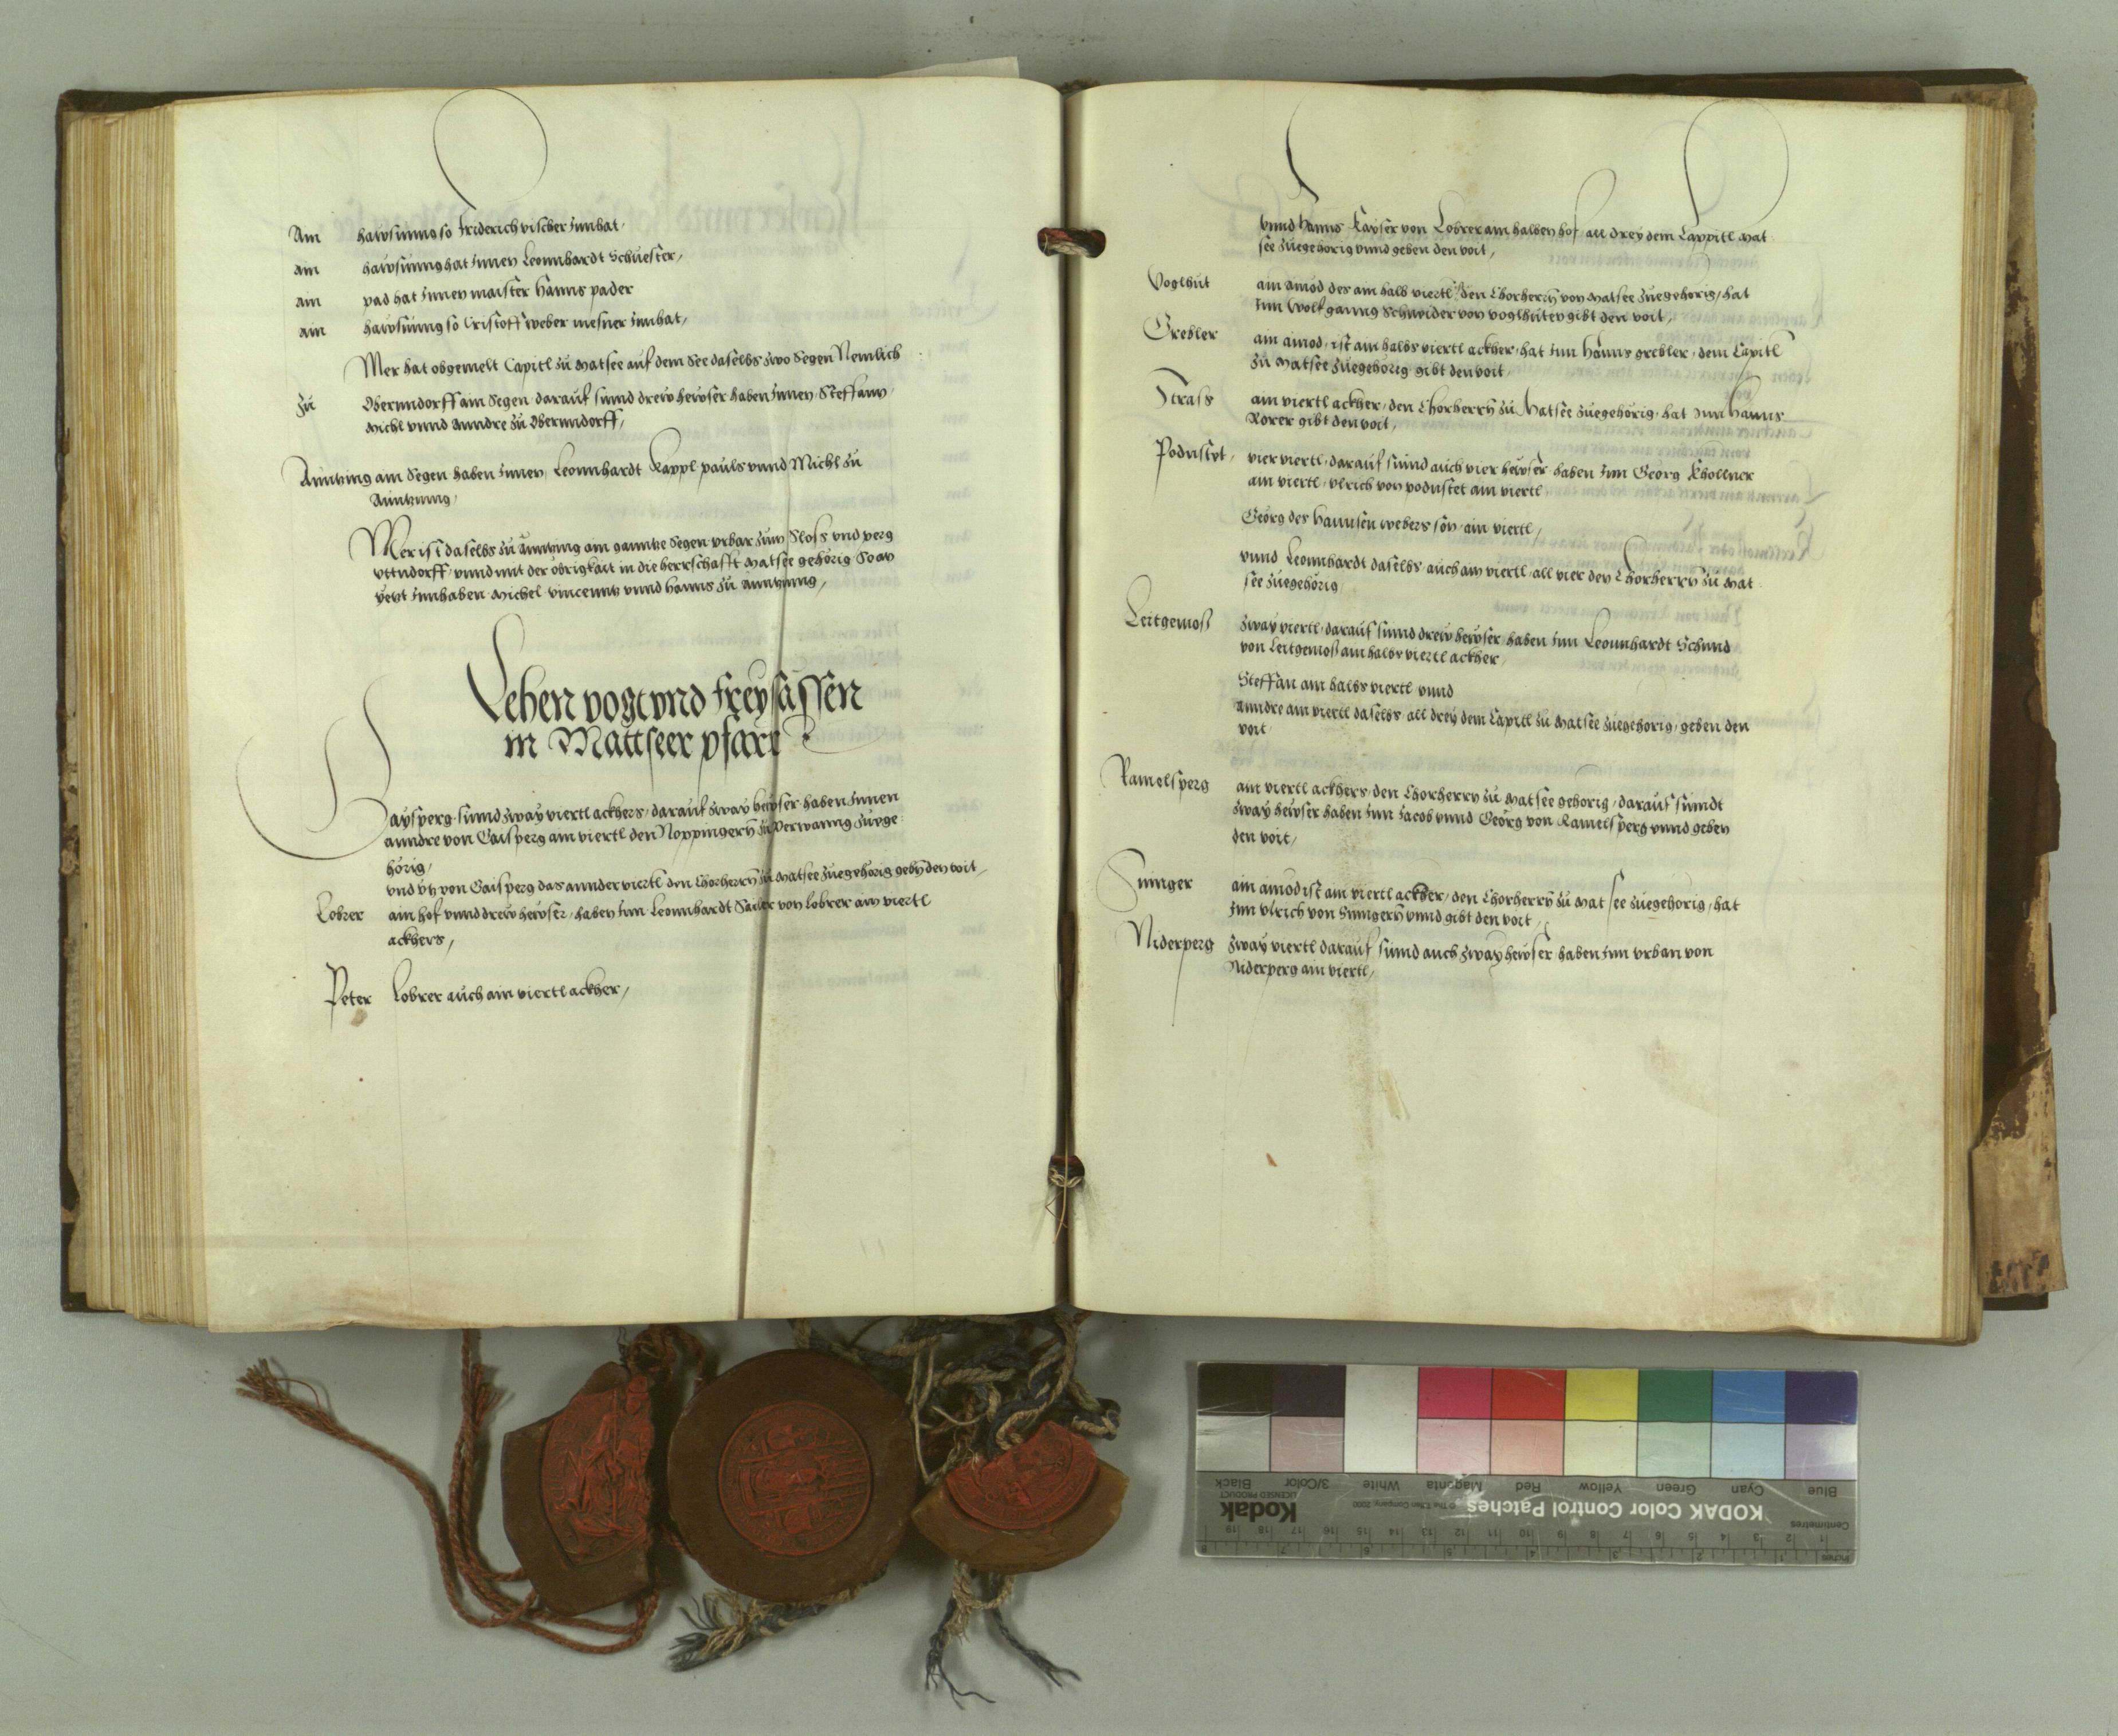 Ain hawsunng so Friderich vischer Innhat,
ain hawsunng hat Innen Leonnhardt Schuester,
ain pad hat Innen maister Hanns pader
ain hawsunng so Cristoff weber mesner Innhat,
Mer hat obgemelt Capitl zu Matsee auf dem See daselbs zwo Segen Nemlich
zu Obernndorff ain Segen darauf sunnd drew hewser haben Innen Steffann
Michl vnnd Anndre zu Obernndorff,
Ainntzing ain Segen haben Innen Leonnhardt Kappl pauls vnnd Michl zu
Ainntzinng,
Mer ist daselbs zu Ainntzing ain ganntze Segen vrbar zum Sloss vnd perg
vttndorff vnnd mit der obrigkait in die herrschafft Matsee gehörig So an
yetzt Innhaben Michel vincenntz vnnd Hanns zu Ainntzinng,
Lehen vogt vnd freysässen
in Mattseer pfarr
Gaysperg sunnd zway viertl ackhers, darauf zway hewser haben Innen
anndre von Gaisperg ain viertl den Noppingern zu Perwanng zuege:
hörig,
vnd vtz von Gaisperg das annder viertl den Chorherrn zu Matsee zuegehörig gebn den voit,
Lohrer ain hof vnnd drew hewser, haben Inn Leonnhardt Sailer von Lohrer ain viertl
ackhers,
Peter Lohrer auch ain viertl ackher,
vnnd Hanns Kayser von Lohrer ain halben hof all drey dem Cappitl Mat
see zuegehörig vnnd geben den voit,
Voglhut ain ainöd des ain halb viertl den Chorherrn von Matsee zuegehörig, hat
Inn Wolfganng Schneider von voglhuten gibt den voit,
Grebler ain ainöd, ist ain halbs viertl ackher, hat Inn Hanns grebler, dem Capitl
zu Matsee zuegehörig gibt den voit,
Strass ain viertl ackher, den Chorherrn zu Matsee zuegehörig, hat Inn Hanns
Rorer gibt den voit,
Podnstet, vier viertl, darauf sunnd auch vier hewser haben Inn Georg Khollner
ain viertl, vlrich von podnstet ain viertl
Georg des Hannsen webers son, ain viertl,
vnnd Leonnhardt daselbs auch ain viertl, all vier den Chorherrn zu Mat
see zuegehörig
Leitgemoß zway viertl, darauf sunnd drew hewser, haben Inn Leonnhardt Schmid
von Leitgemoß ain halbs viertl ackher,
Steffan ain halbs viertl vnnd
Anndre ain viertl daselbs, all drey dem Capitl zu Matsee zuegehörig, geben den
voit
Ramelsperg ain viertl ackhers, den Chorherrn zu Matsee gehörig, darauf sunndt
zway hewser haben Inn Jacob vnnd Georg von Ramelsperg vnnd geben
den voit,
Suinger ain ainöd ist ain viertl ackher, den Chorherrn zu Matsee zuegehörig, hat
Inn vlrich von Suingern vnnd gibt den voit,
Niderperg zway viertl darauf sunnd auch zway hewser haben Inn vrban von
Niderperg ain viertl,
KODAK Color Control Patches
Kodak
LICENSED PRODUCT
Blue Cyan Green Yellow Red Magenta White 3/Color Black
Centimetres
Inches